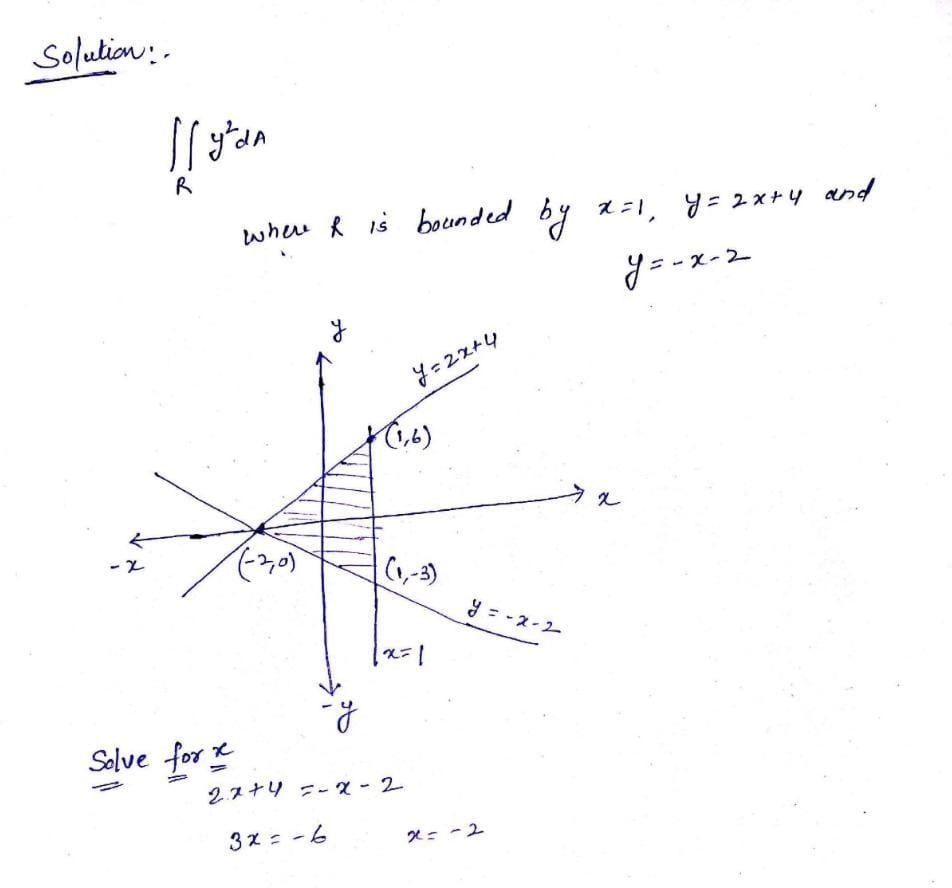 Solution:-
∬ y²dA
R
where R is bounded by x=1, y=2x+4 and
y=-x-2
y
y=2x+4
(1,6)
x
-x
(-2,0)
(1,-3)
y=-x-2
x=1
-y
Solve for x
2x+4 =-x-2
3x=-6 x=-2